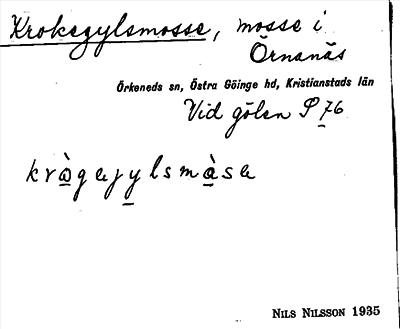 Krokegylsmosse, mosse i
Örnanäs
Örkeneds sn, Östra Göinge hd, Kristianstads län
Vid gölen P 76
NILS NILSSON 1935